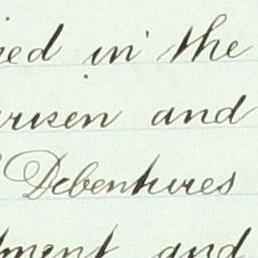 ied in the
arisen and
Debentures
ment and